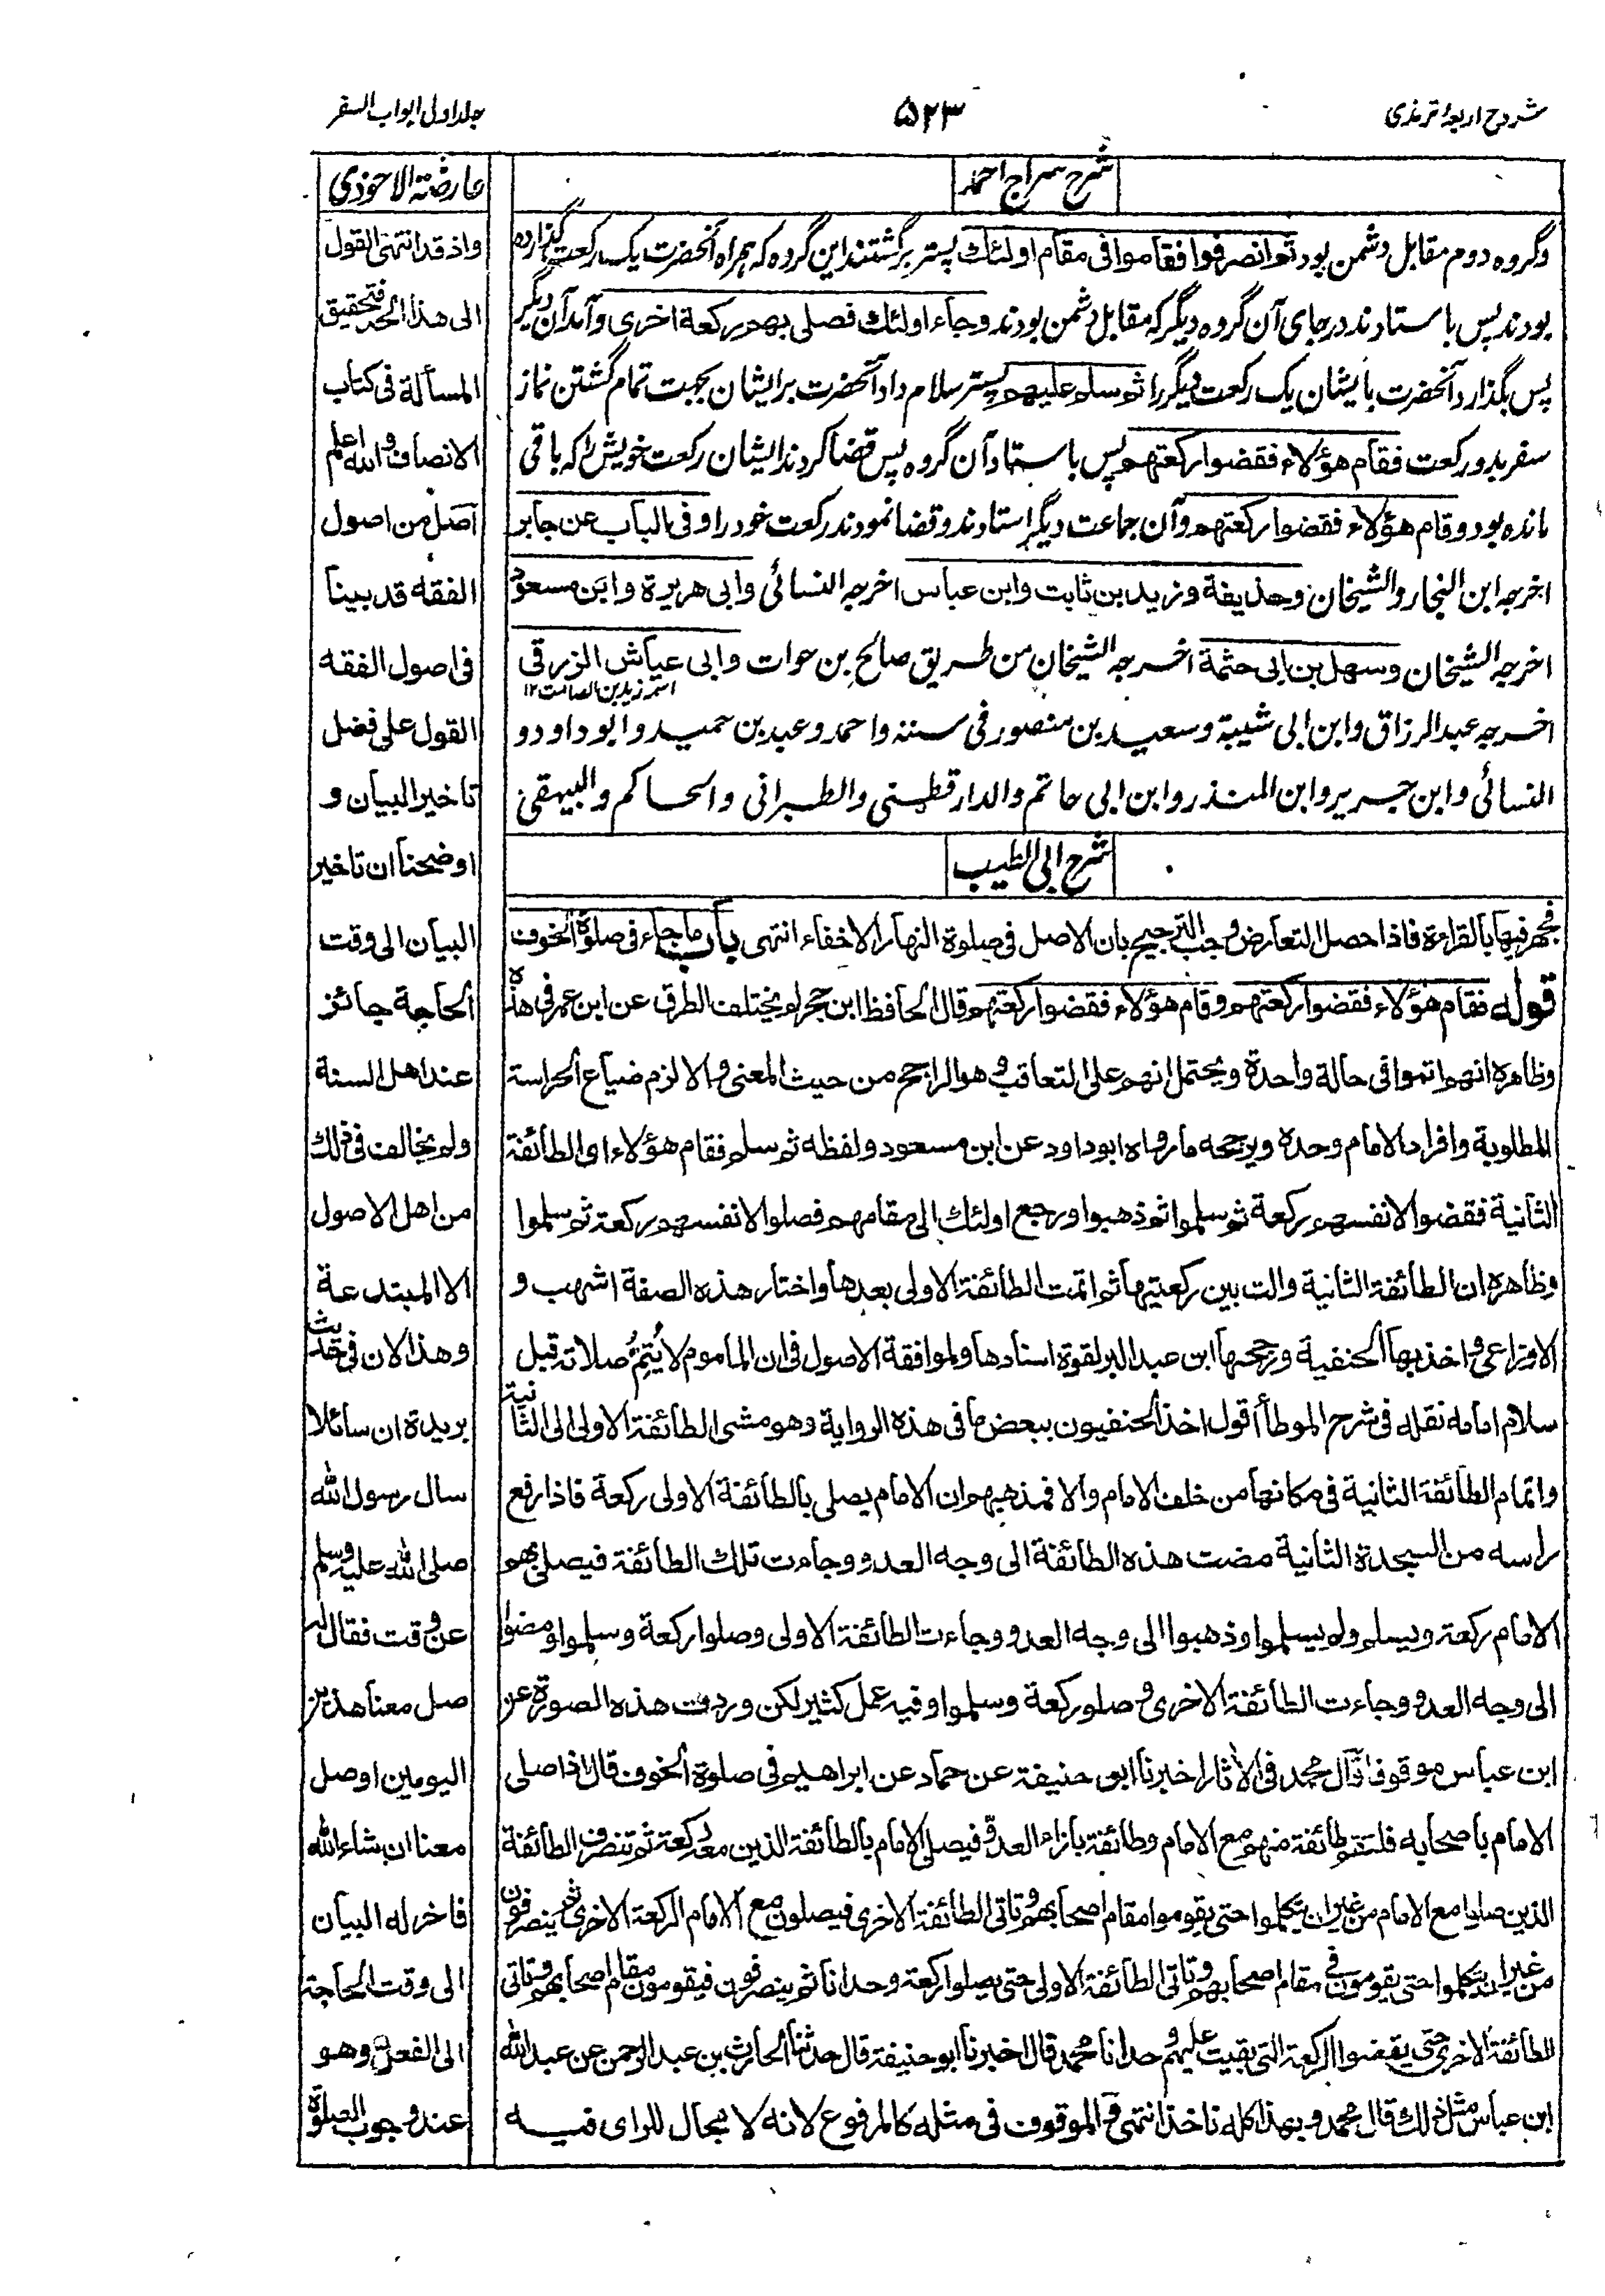 شروح اربعهٔ ترمذی
۵۲۳
جلد اول ابواب السفر
شرح سراج احمد
وگروه دوم مقابل دشمن بود ثم انصرفوا فقاموا فی مقام اولئك پستر برگشتند این گروه که همراه آنحضرت یک رکعت گذارده
بودند پس باستادند در جای آن گروه دیگر که مقابل دشمن بودند وجاء اولئك فصلی بهم رکعة اخری وآمد آن دیگر
پس بگذارد آنحضرت بایشان یک رکعت دیگر را ثم سلم علیهم پستر سلام داد آنحضرت بر ایشان بجهت تمام گشتن نماز
سفر بدو رکعت فقام هؤلاء فقضوا رکعتهم پس باستاد آن گروه پس قضا کردند ایشان رکعت خویش را که باقی
مانده بود وقام هؤلاء فقضوا رکعتهم وآن جماعت دیگر استادند وقضا نمودند رکعت خود را وفی الباب عن جابر
اخرجه ابن النجار والشیخان وحذیفة وزید بن ثابت وابن عباس اخرجه النسائی وابی هریرة وابن مسعود
اخرجه الشیخان وسهل بن ابی حثمة اخرجه الشیخان من طریق صالح بن حوات وابی عیاش الزرقی
اسمه زید بن الصامت ۱۲
اخرجه عبد الرزاق وابن ابی شیبة وسعید بن منصور فی سننه واحمد وعبد بن حمید وابو داود و
النسائی وابن جریر وابن المنذر وابن ابی حاتم والدارقطنی والطبرانی والحاکم والبیهقی
شرح ابی الطیب
فجهر فیها بالقراءة فاذا حصل التعارض وجب الترجیح بان الاصل فی صلوة النهار الاخفاء انتهی باب ما جاء فی صلوة الخوف
قوله فقام هؤلاء فقضوا رکعتهم وقام هؤلاء فقضوا رکعتهم قال الحافظ ابن حجر لم یختلف الطرق عن ابن عمر فی هذه
وظاهره انهم اتموا فی حالة واحدة ویحتمل انهم علی التعاقب وهو الراجح من حیث المعنی والا لزم ضیاع الحراسة
المطلوبة وافراد الامام وحده ویرجحه ما رواه ابو داود عن ابن مسعود ولفظه ثم سلم فقام هؤلاء ای الطائفة
الثانیة فقضوا لانفسهم رکعة ثم سلموا ثم ذهبوا ورجع اولئك الی مقامهم فصلوا لانفسهم رکعة ثم سلموا
وظاهره ان الطائفة الثانیة والت بین رکعتیها ثم اتمت الطائفة الاولی بعدها واختار هذه الصفة اشهب و
الاوزاعی واخذ بها الحنفیة ورجحها ابن عبد البر لقوة اسنادها ولموافقة الاصول فی ان الماموم لا یُتِمُّ صلاته قبل
سلام امامه نقله فی شرح الموطأ اقول اخذ الحنفیون ببعض ما فی هذه الروایة وهو مشی الطائفة الاولی الی الثانیة
واتمام الطائفة الثانیة فی مکانها من خلف الامام والا فمذهبهم ان الامام یصلی بالطائفة الاولی رکعة فاذا رفع
راسه من السجدة الثانیة مضت هذه الطائفة الی وجه العدو وجاءت تلك الطائفة فیصلی بهم
الامام رکعة ویسلم ولم یسلموا وذهبوا الی وجه العدو وجاءت الطائفة الاولی وصلوا رکعة وسلموا ومضوا
الی وجه العدو وجاءت الطائفة الاخری وصلو رکعة وسلموا وفیه عمل کثیر لکن وردت هذه الصورة عن
ابن عباس موقوفا قال محمد فی الاثار اخبرنا ابو حنیفة عن حماد عن ابراهیم فی صلوة الخوف قال اذا صلی
الامام باصحابه فلتقم طائفة منهم مع الامام وطائفة بازاء العدو فیصلی الامام بالطائفة الذین معه رکعة ثم تنصرف الطائفة
الذین صلوا مع الامام من غیر ان یتکلموا حتی یقوموا مقام اصحابهم وتاتی الطائفة الاخری فیصلون مع الامام الرکعة الاخری ثم ینصرفون
من غیر ان یتکلموا حتی یقومون فی مقام اصحابهم وتاتی الطائفة الاولی حتی یصلوا رکعة وحدانا ثم ینصرفون فیقومون مقام اصحابهم وتاتی
الطائفة الاخری حتی یقضوا الرکعة التی بقیت علیهم وحدانا محمد قال اخبرنا ابو حنیفة قال حدثنا الحارث بن عبد الرحمن عن عبد الله
ابن عباس مثل ذلك قال محمد وبهذا کله ناخذ انتهی والموقوف فی مثله کالمرفوع لانه لا مجال للرای فیه
عارضة الاحوذی
واذ قد انتهی القول
الی هذا الحد فتحقیق
المسألة فی کتاب
الانصاف والله اعلم
اصل من اصول
الفقه قد بینا
فی اصول الفقه
القول علی فضل
تاخیر البیان و
اوضحنا ان تاخیر
البیان الی وقت
الحاجة جائز
عند اهل السنة
ولم یخالف فی ذلك
من اهل الاصول
الا المبتدعة
وهذا الان فی حدیث
بریدة ان سائلا
سال رسول الله
صلی الله علیه وسلم
عن وقت فقال له
صل معنا هذین
الیومین او صل
معنا ان شاء الله
فاخر له البیان
الی وقت الحاجة
الی الفعل وهو
عند وجوب الصلوة